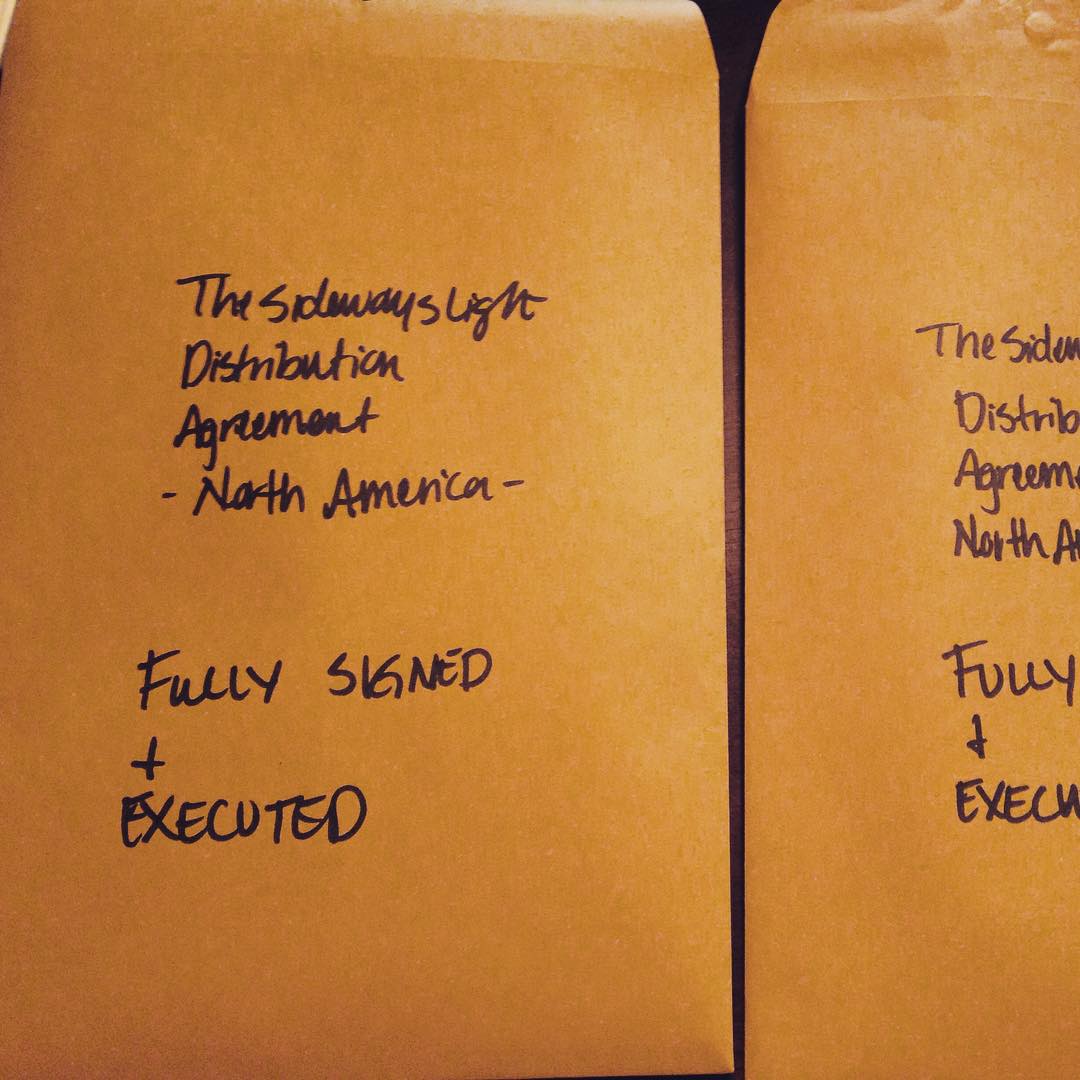 The Sideways Light
Distribution
Agreement
- North America -
FULLY SIGNED
+
EXECUTED
The Sidew
Distrib
Agreeme
North Am
FULLY
+
EXECU